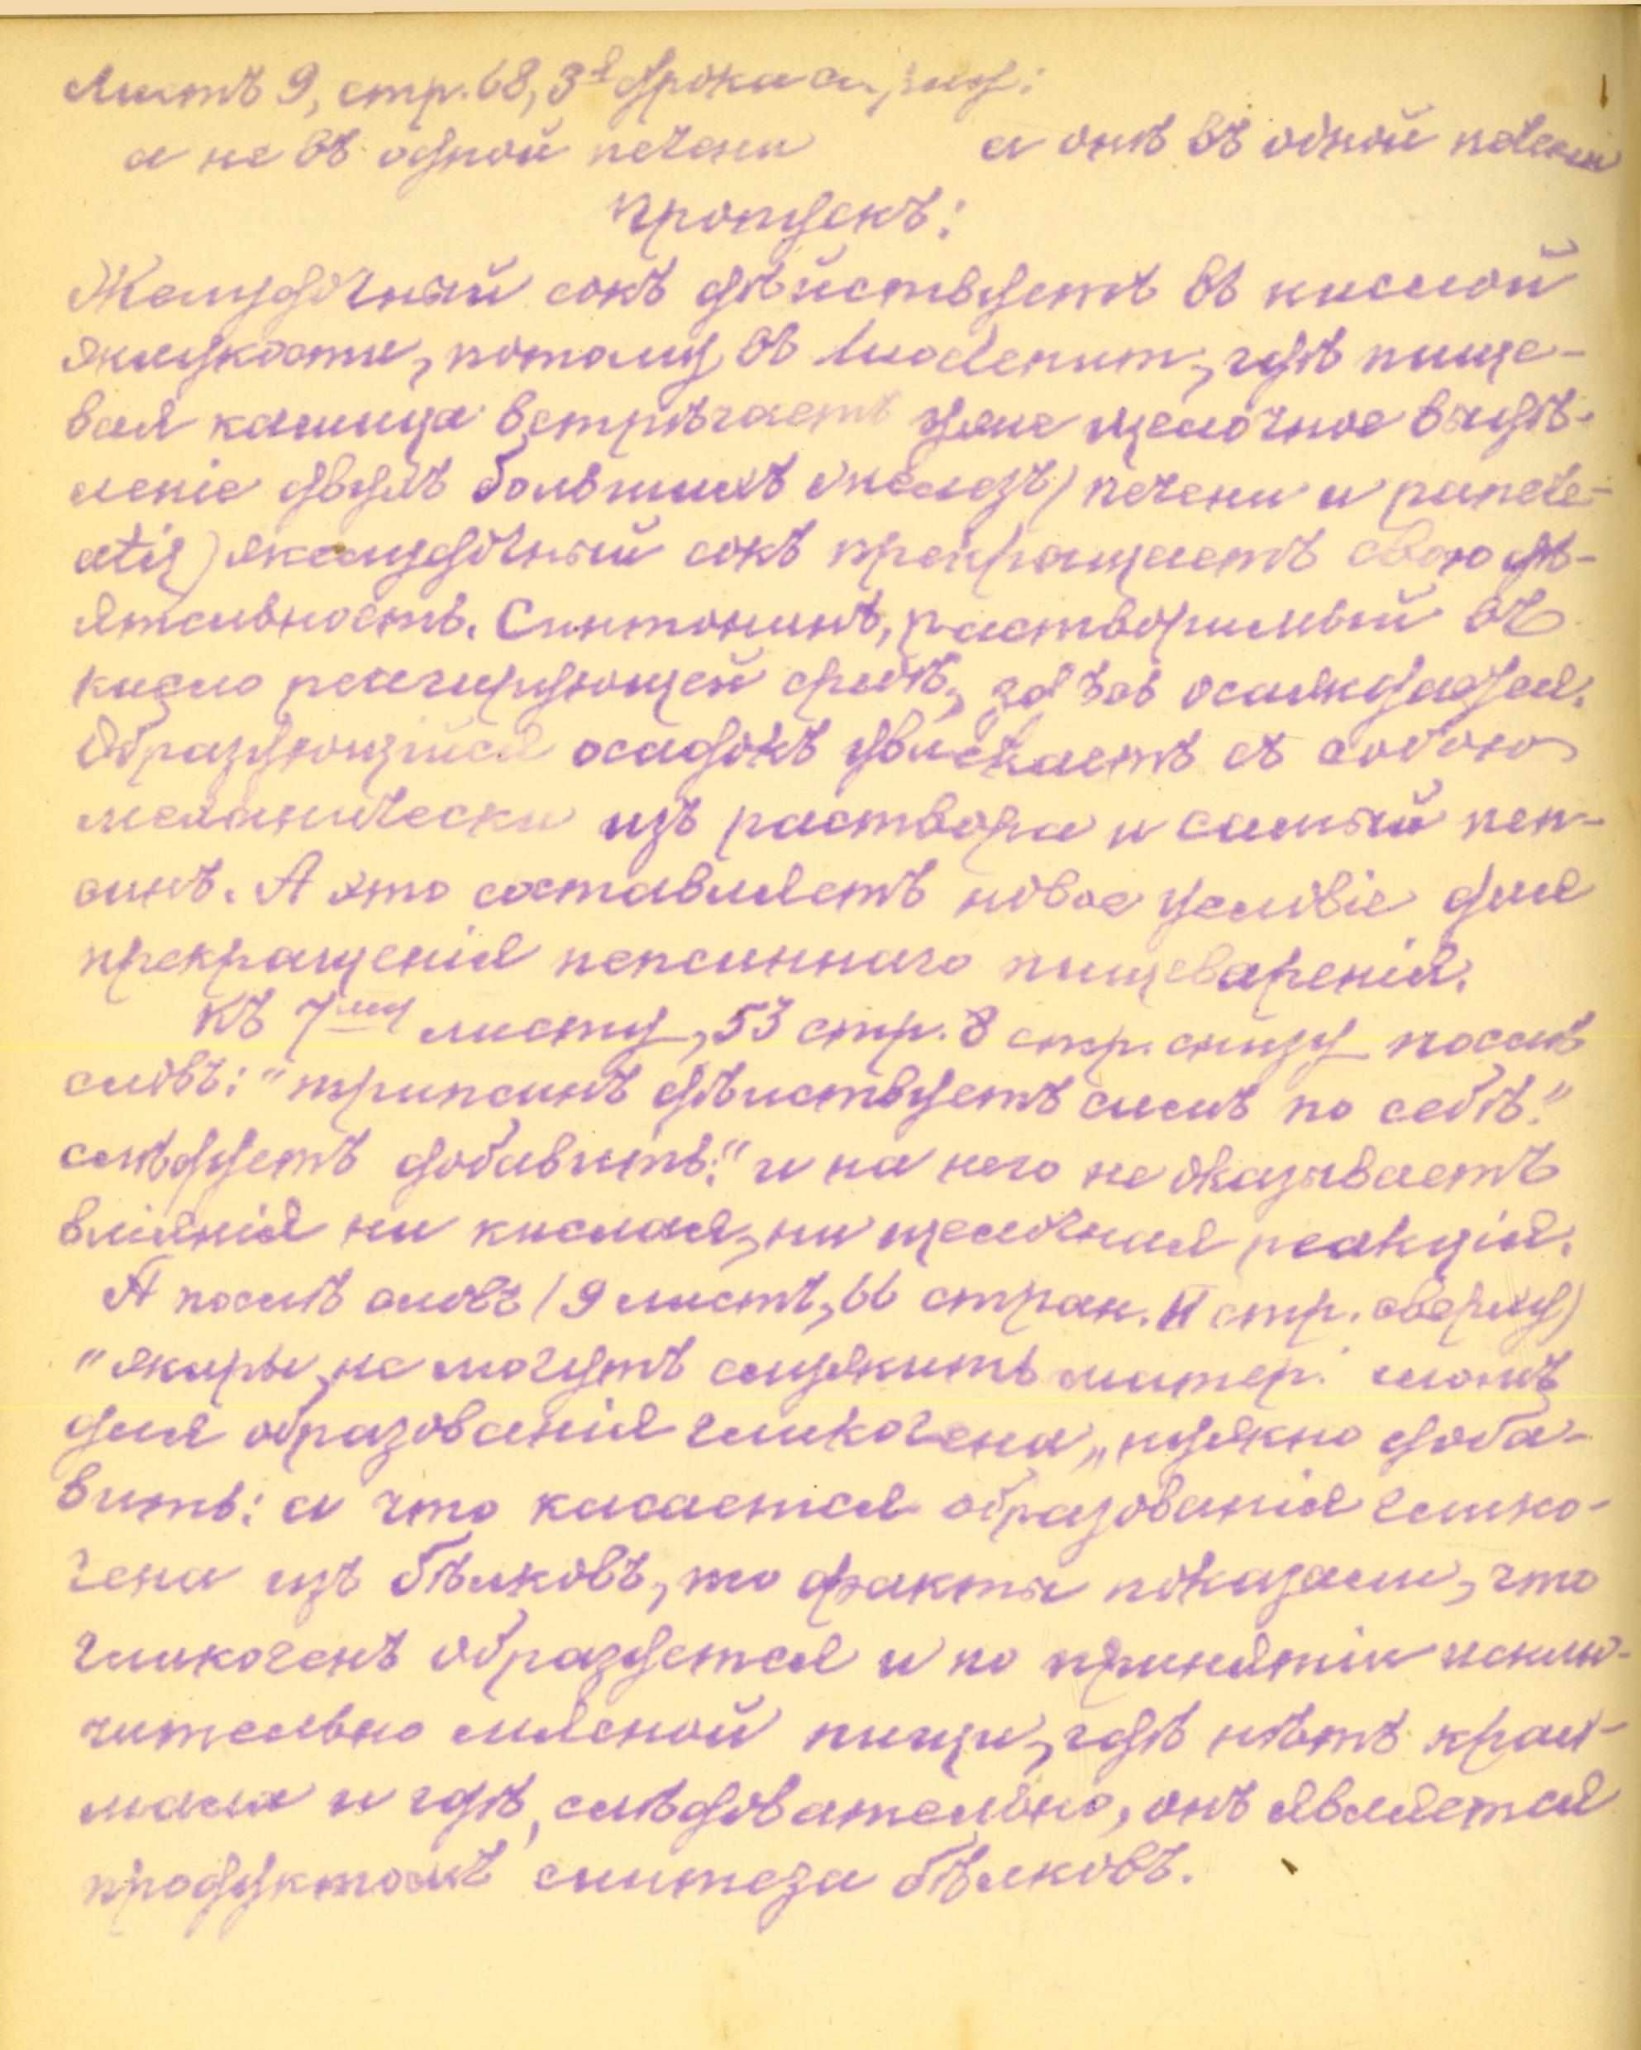 Листъ 9, стр. 68, 3я строка
а не въ одной печени а онъ въ одной печени
Пропускъ:
Желудочный сокъ дѣйствуетъ въ кислой
жидкости, потому въ duodenum, гдѣ пище-
вая кашица встрѣчаетъ уже щелочное выдѣ-
леніе двухъ большихъ железъ) печени и pancre-
atis) желудочный сокъ прекращаетъ свою дѣ-
ятельность. Синтонинъ, растворимый въ
кисло реагирующей средѣ, осаждается.
Образующійся осадокъ увлекаетъ съ собою
механически изъ раствора и самый пеп-
синъ. А это составляетъ новое условіе для
прекращенія пепсиннаго пищеваренія.
Къ 7му листу, 53 стр. 8 стр. снизу послѣ
словъ: "трипсинъ дѣиствуетъ самъ по себѣ."
слѣдуетъ добавить: "и на него не оказываетъ
вліянія ни кислая, ни щелочная реакція.
А послѣ словъ (9 листъ, 66 стран. II стр. сверху)
"жиры, не могутъ служить матер.
для образованія гликогена" нужно доба-
вить: а что касается образованія глико-
гена изъ бѣлковъ, то факты показали, что
гликогенъ образуется и по принятіи исклю-
чительно мясной пищи, гдѣ нѣтъ крах-
мала и гдѣ, слѣдовательно, онъ является
продуктомъ синтеза бѣлковъ.